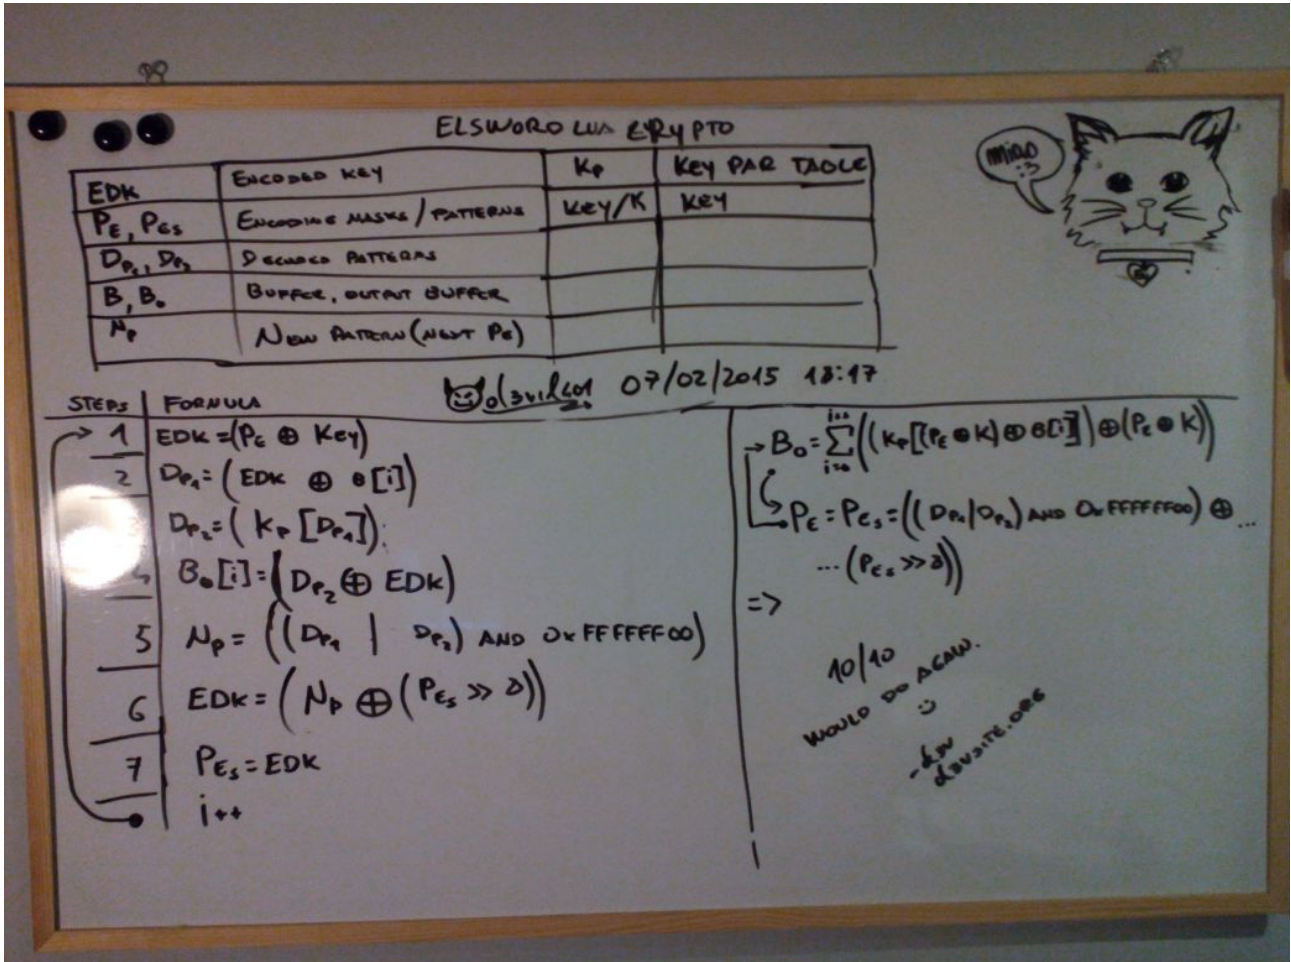 ELSWORD LUA CRYPTO
EDK | ENCODED KEY | Kp | KEY PAR TABLE
PE, PEs | ENCODING MASKS / PATTERNS | KEY/K | KEY
Dp1, Dp2 | DECODED PATTERNS
B, Bo | BUFFER, OUTPUT BUFFER
Np | NEW PATTERN (NEXT PE)
MIAO :3
07/02/2015 18:47
STEPS | FORMULA
1 EDK = (PE ⊕ Key)
2 Dp1 = (EDK ⊕ B[i])
Dp2 = (Kp [Dp1]);
4 Bo[i] = (Dp2 ⊕ EDK)
5 Np = ((Dp1 | Dp2) AND 0xFFFFFF00)
6 EDK = (Np ⊕ (PEs >> 8))
7 PEs = EDK
i++
→ Bo = i=0 ∑ i++ ((Kp[(PE ⊕ K) ⊕ B[i]]) ⊕ (PE ⊕ K))
PE = PEs = ((Dp1|Dp2) AND 0xFFFFFF00) ⊕ ...
... (PEs >> 8))
=>
10/10
WOULD DO AGAIN.
:)